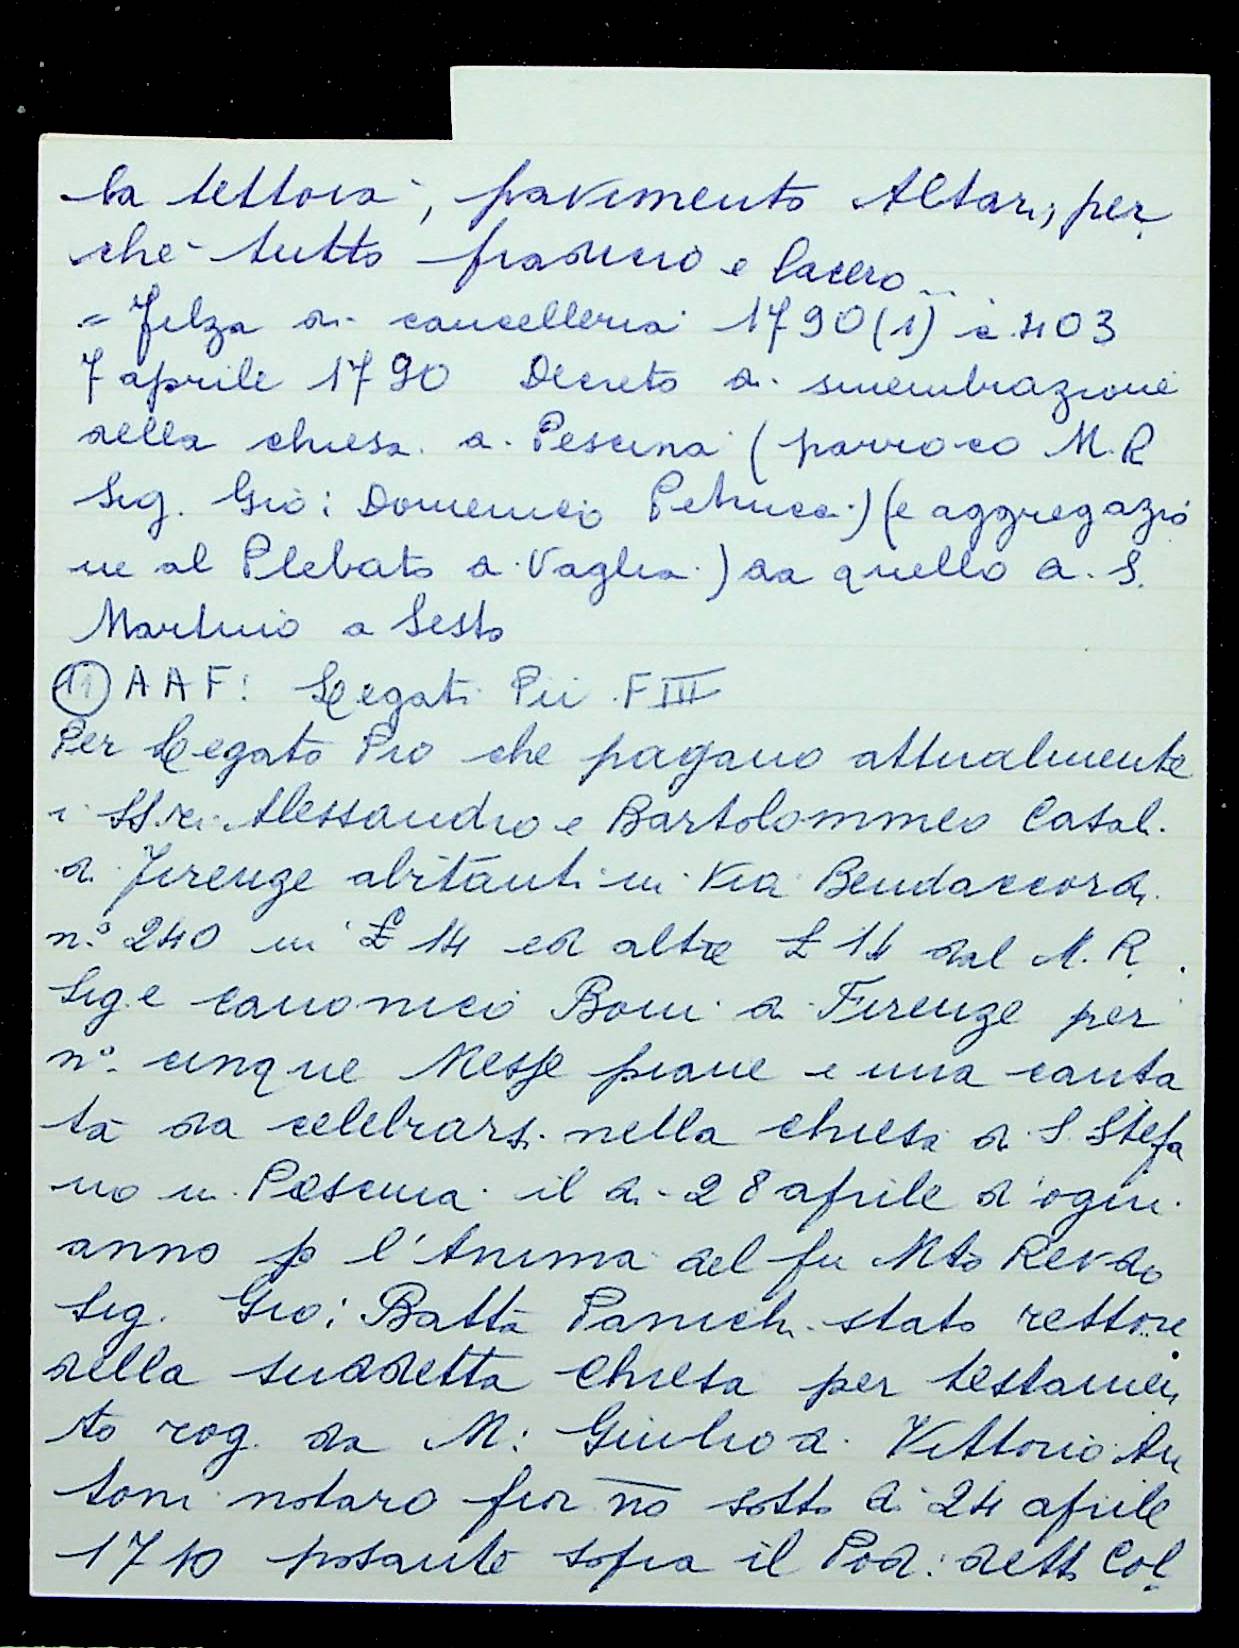 la tettoia, pavimento Altari, per
chè tutto fradicio e lacero...
= Filza di cancelleria 1790 (1) c. 403
7 aprile 1790 Decreto di smembrazione
della chiesa di Pescina (parroco M.R
Sig. Gio: Domenico Petrucci) (e aggregazio
ne al Plebato di Vaglia) da quello di S.
Martino a Sesto
(11) A A F: Legati Pii F III
Per Legato Pio che pagano attualmente
i SS.ri Alessandro e Bartolommeo Casali
di Firenze abitanti in Via Bendaccordi
n.° 240 in £ 14 ed altre £ 14 dal M. R.
Sig.e canonico Boni di Firenze per
n.° cinque Messe piane e una canta
ta da celebrarsi nella chiesa di S. Stefa
no in Pescina il di 28 aprile d'ogni
anno p l'Anima del fu Mto Revdo
Sig. Gio: Batta Panichi stato rettore
della suddetta Chiesa per testamen
to rog. da M: Giulio di Vittorio An
toni notaro fior no sotto di 24 aprile
1710 posante sopra il Pod: detto Col